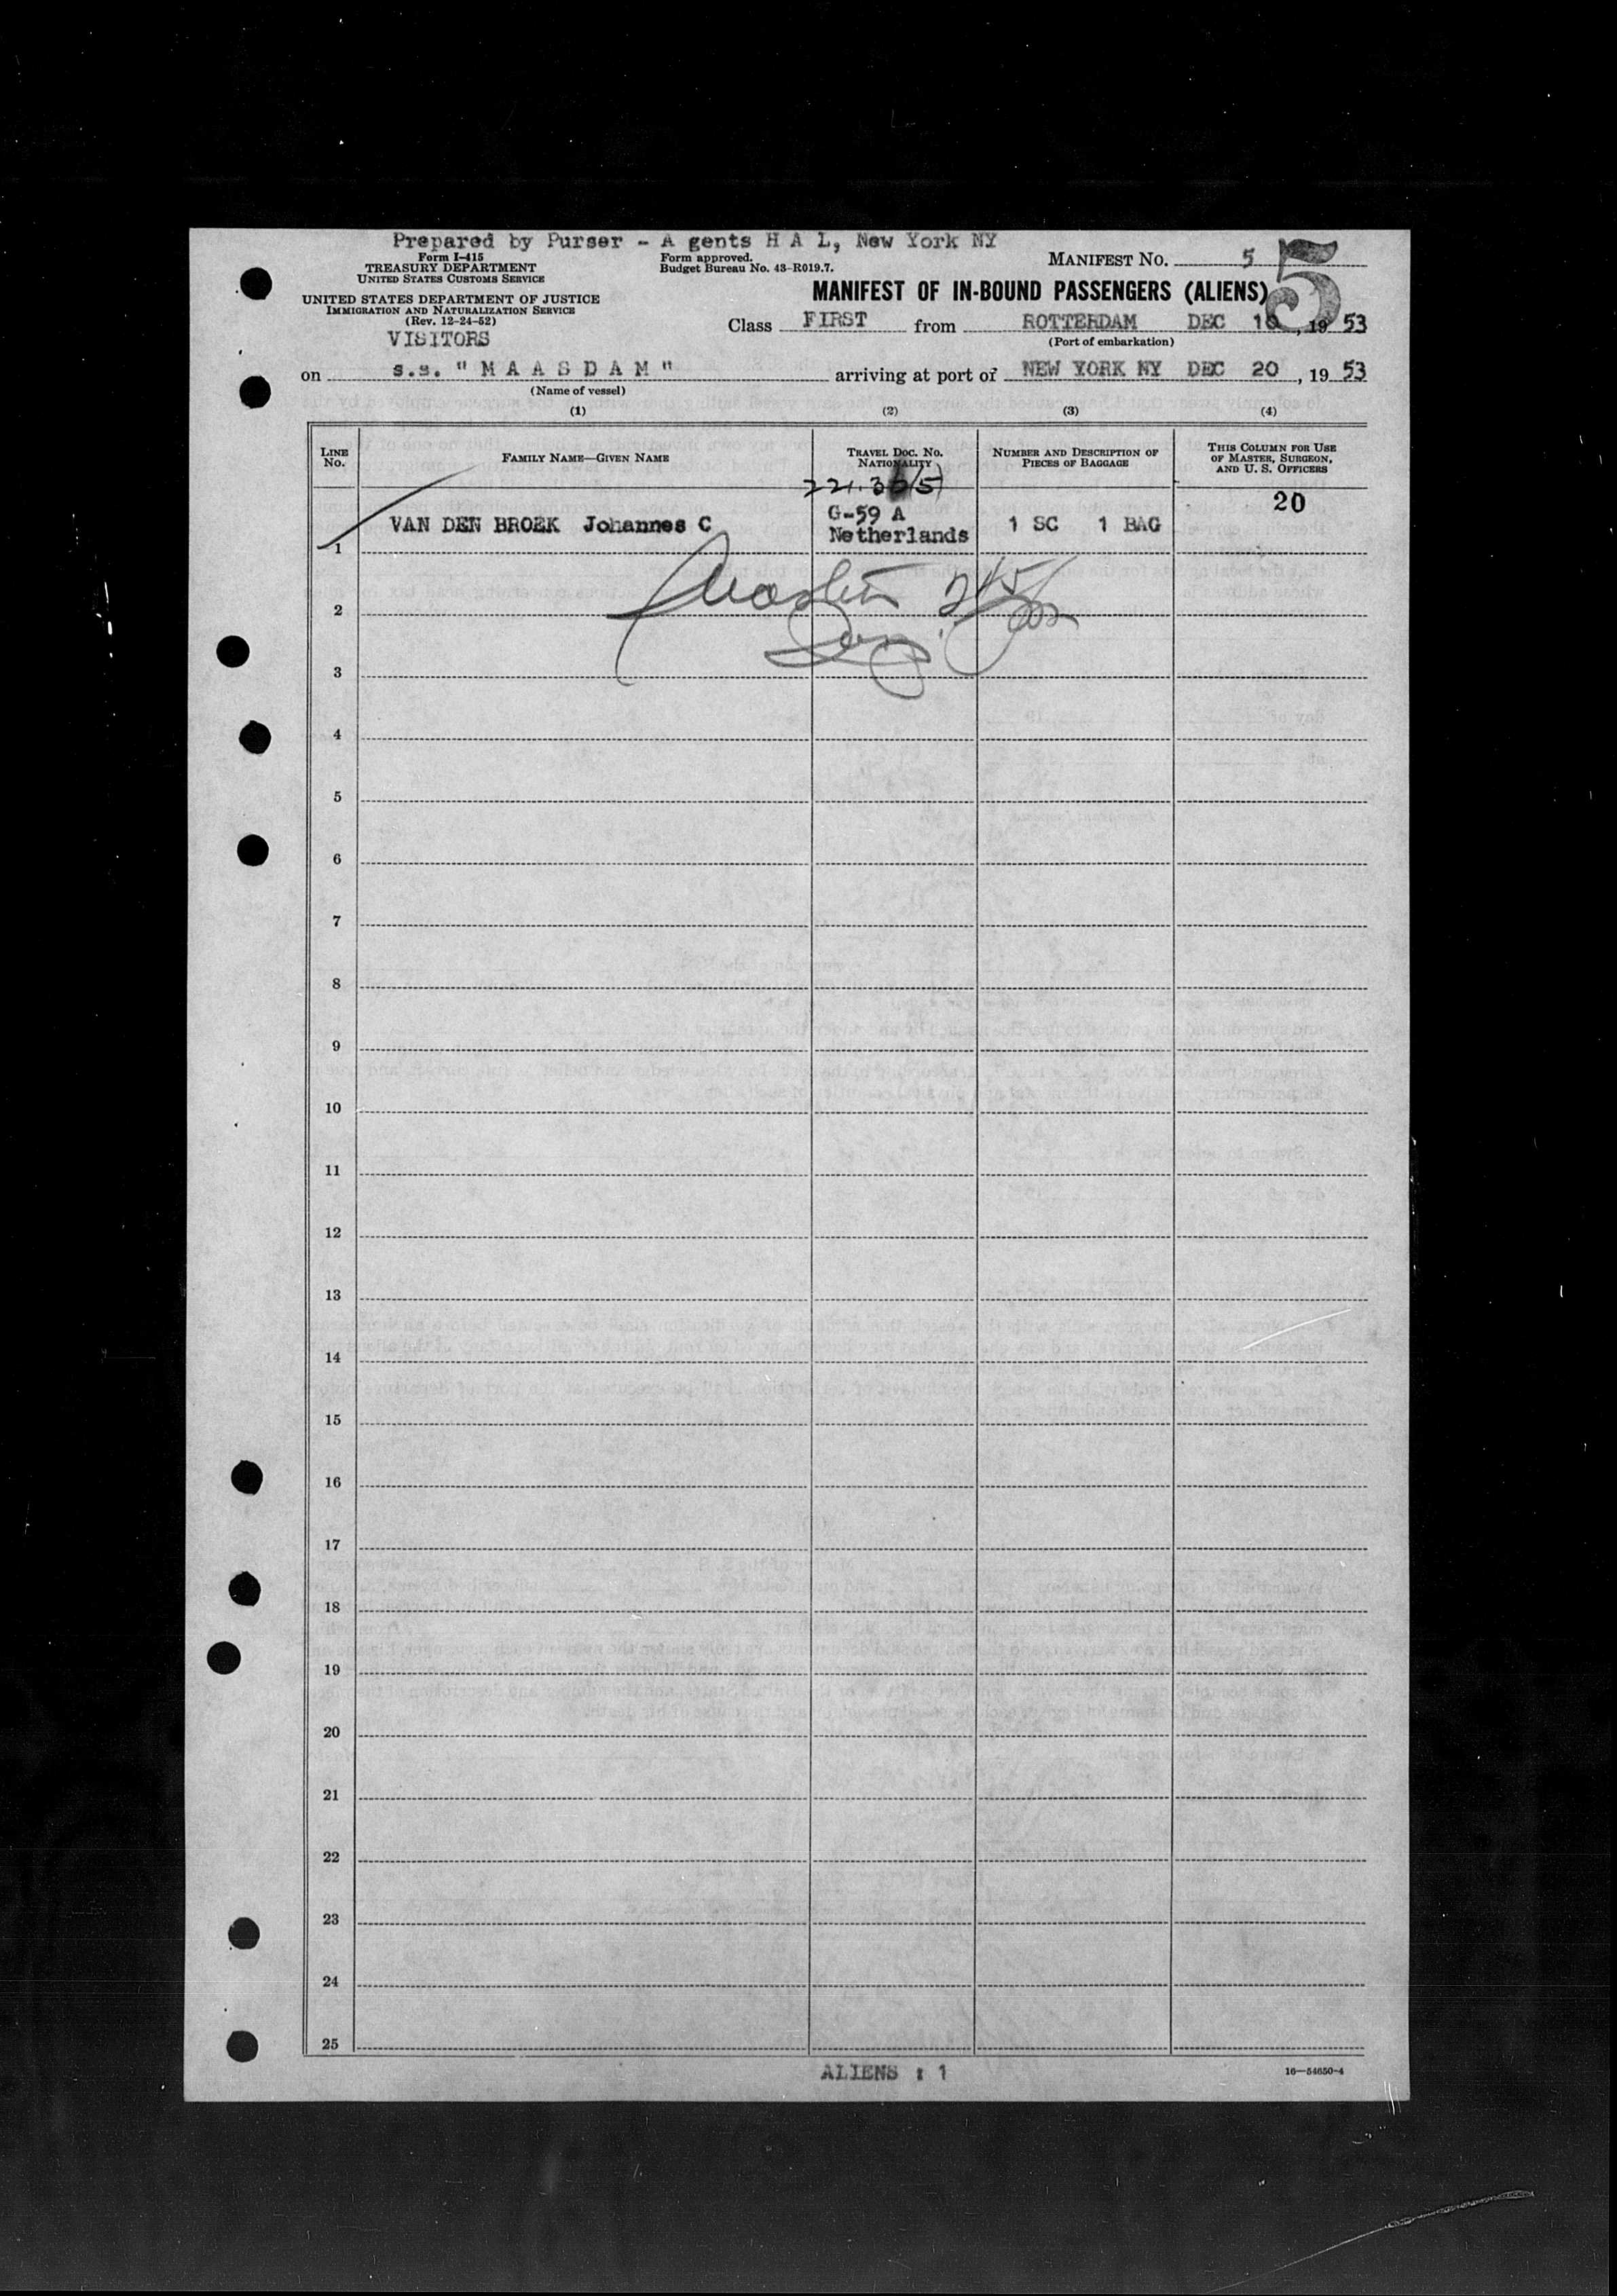 Prepared by Purser - A gents H A L, New York NY
Form I-415
TREASURY DEPARTMENT
UNITED STATES CUSTOMS SERVICE
Form approved.
Budget Bureau No. 43-R019.7.
MANIFEST NO. 5
5
UNITED STATES DEPARTMENT OF JUSTICE
IMMIGRATION AND NATURALIZATION SERVICE
(Rev. 12-24-52)
VISITORS
MANIFEST OF IN-BOUND PASSENGERS (ALIENS)
Class FIRST from ROTTERDAM DEC 10, 19 53
(Port of embarkation)
on s.s. " M A A S D A M " arriving at port of NEW YORK NY DEC 20, 19 53
(Name of vessel)
(1) (2) (3) (4)
LINE NO.
FAMILY NAME—GIVEN NAME
TRAVEL DOC. NO.
NATIONALITY
NUMBER AND DESCRIPTION OF
PIECES OF BAGGAGE
THIS COLUMN FOR USE
OF MASTER, SURGEON,
AND U. S. OFFICERS
20
G-59 A
1 VAN DEN BROEK Johannes C Netherlands 1 SC 1 BAG
2
3
4
5
6
7
8
9
10
11
12
13
14
15
16
17
18
19
20
21
22
23
24
25
ALIENS : 1
16—54650-4